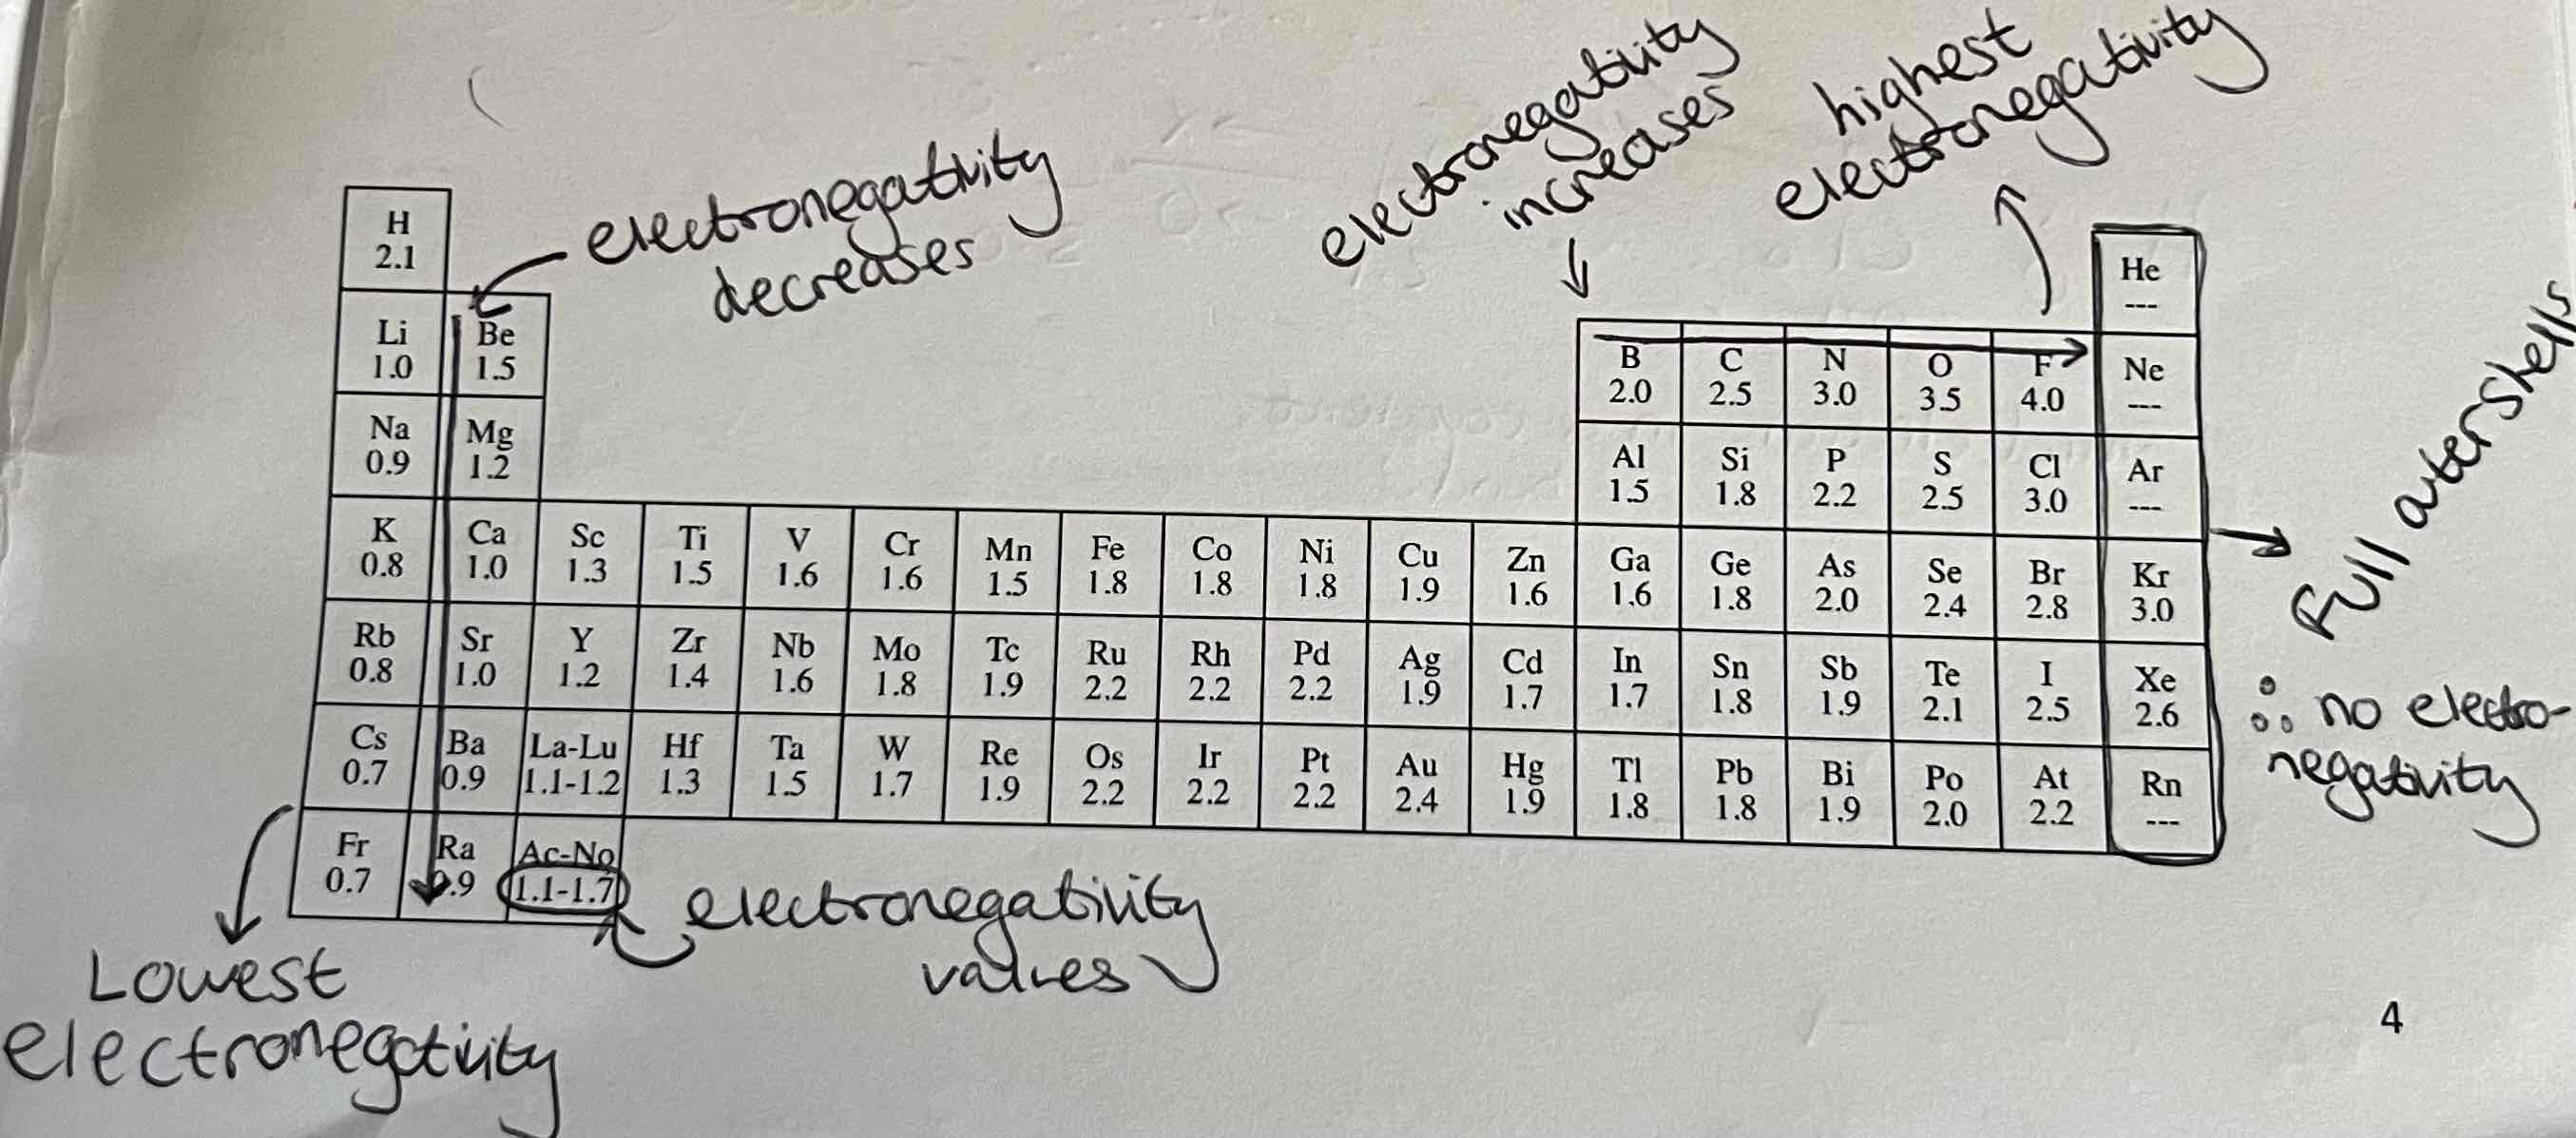 electronegativity
increases
highest
electronegativity
electronegativity
decreases
H
2.1
He
---
Li Be B C N O F Ne
1.0 1.5 2.0 2.5 3.0 3.5 4.0 ---
Na Mg Al Si P S Cl Ar
0.9 1.2 1.5 1.8 2.2 2.5 3.0 ---
K Ca Sc Ti V Cr Mn Fe Co Ni Cu Zn Ga Ge As Se Br Kr
0.8 1.0 1.3 1.5 1.6 1.6 1.5 1.8 1.8 1.8 1.9 1.6 1.6 1.8 2.0 2.4 2.8 3.0
Rb Sr Y Zr Nb Mo Tc Ru Rh Pd Ag Cd In Sn Sb Te I Xe
0.8 1.0 1.2 1.4 1.6 1.8 1.9 2.2 2.2 2.2 1.9 1.7 1.7 1.8 1.9 2.1 2.5 2.6
Cs Ba La-Lu Hf Ta W Re Os Ir Pt Au Hg Tl Pb Bi Po At Rn
0.7 0.9 1.1-1.2 1.3 1.5 1.7 1.9 2.2 2.2 2.2 2.4 1.9 1.8 1.8 1.9 2.0 2.2 ---
Fr Ra Ac-No
0.7 0.9 1.1-1.7
Full outershells
∴ no electro-
negativity
electronegativity
values
Lowest
electronegativity
4